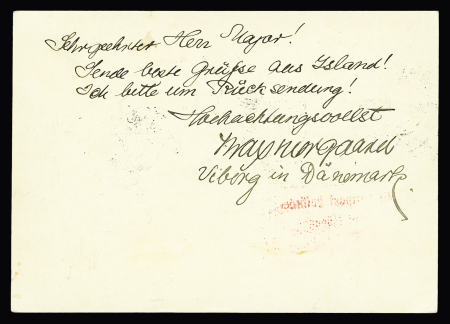 Sehrgeehrter Herr Major!
Sende beste Grüße aus Island!
Ich bitte um Rücksendung!
Hochachtungsvollst
Viborg in Dänemark